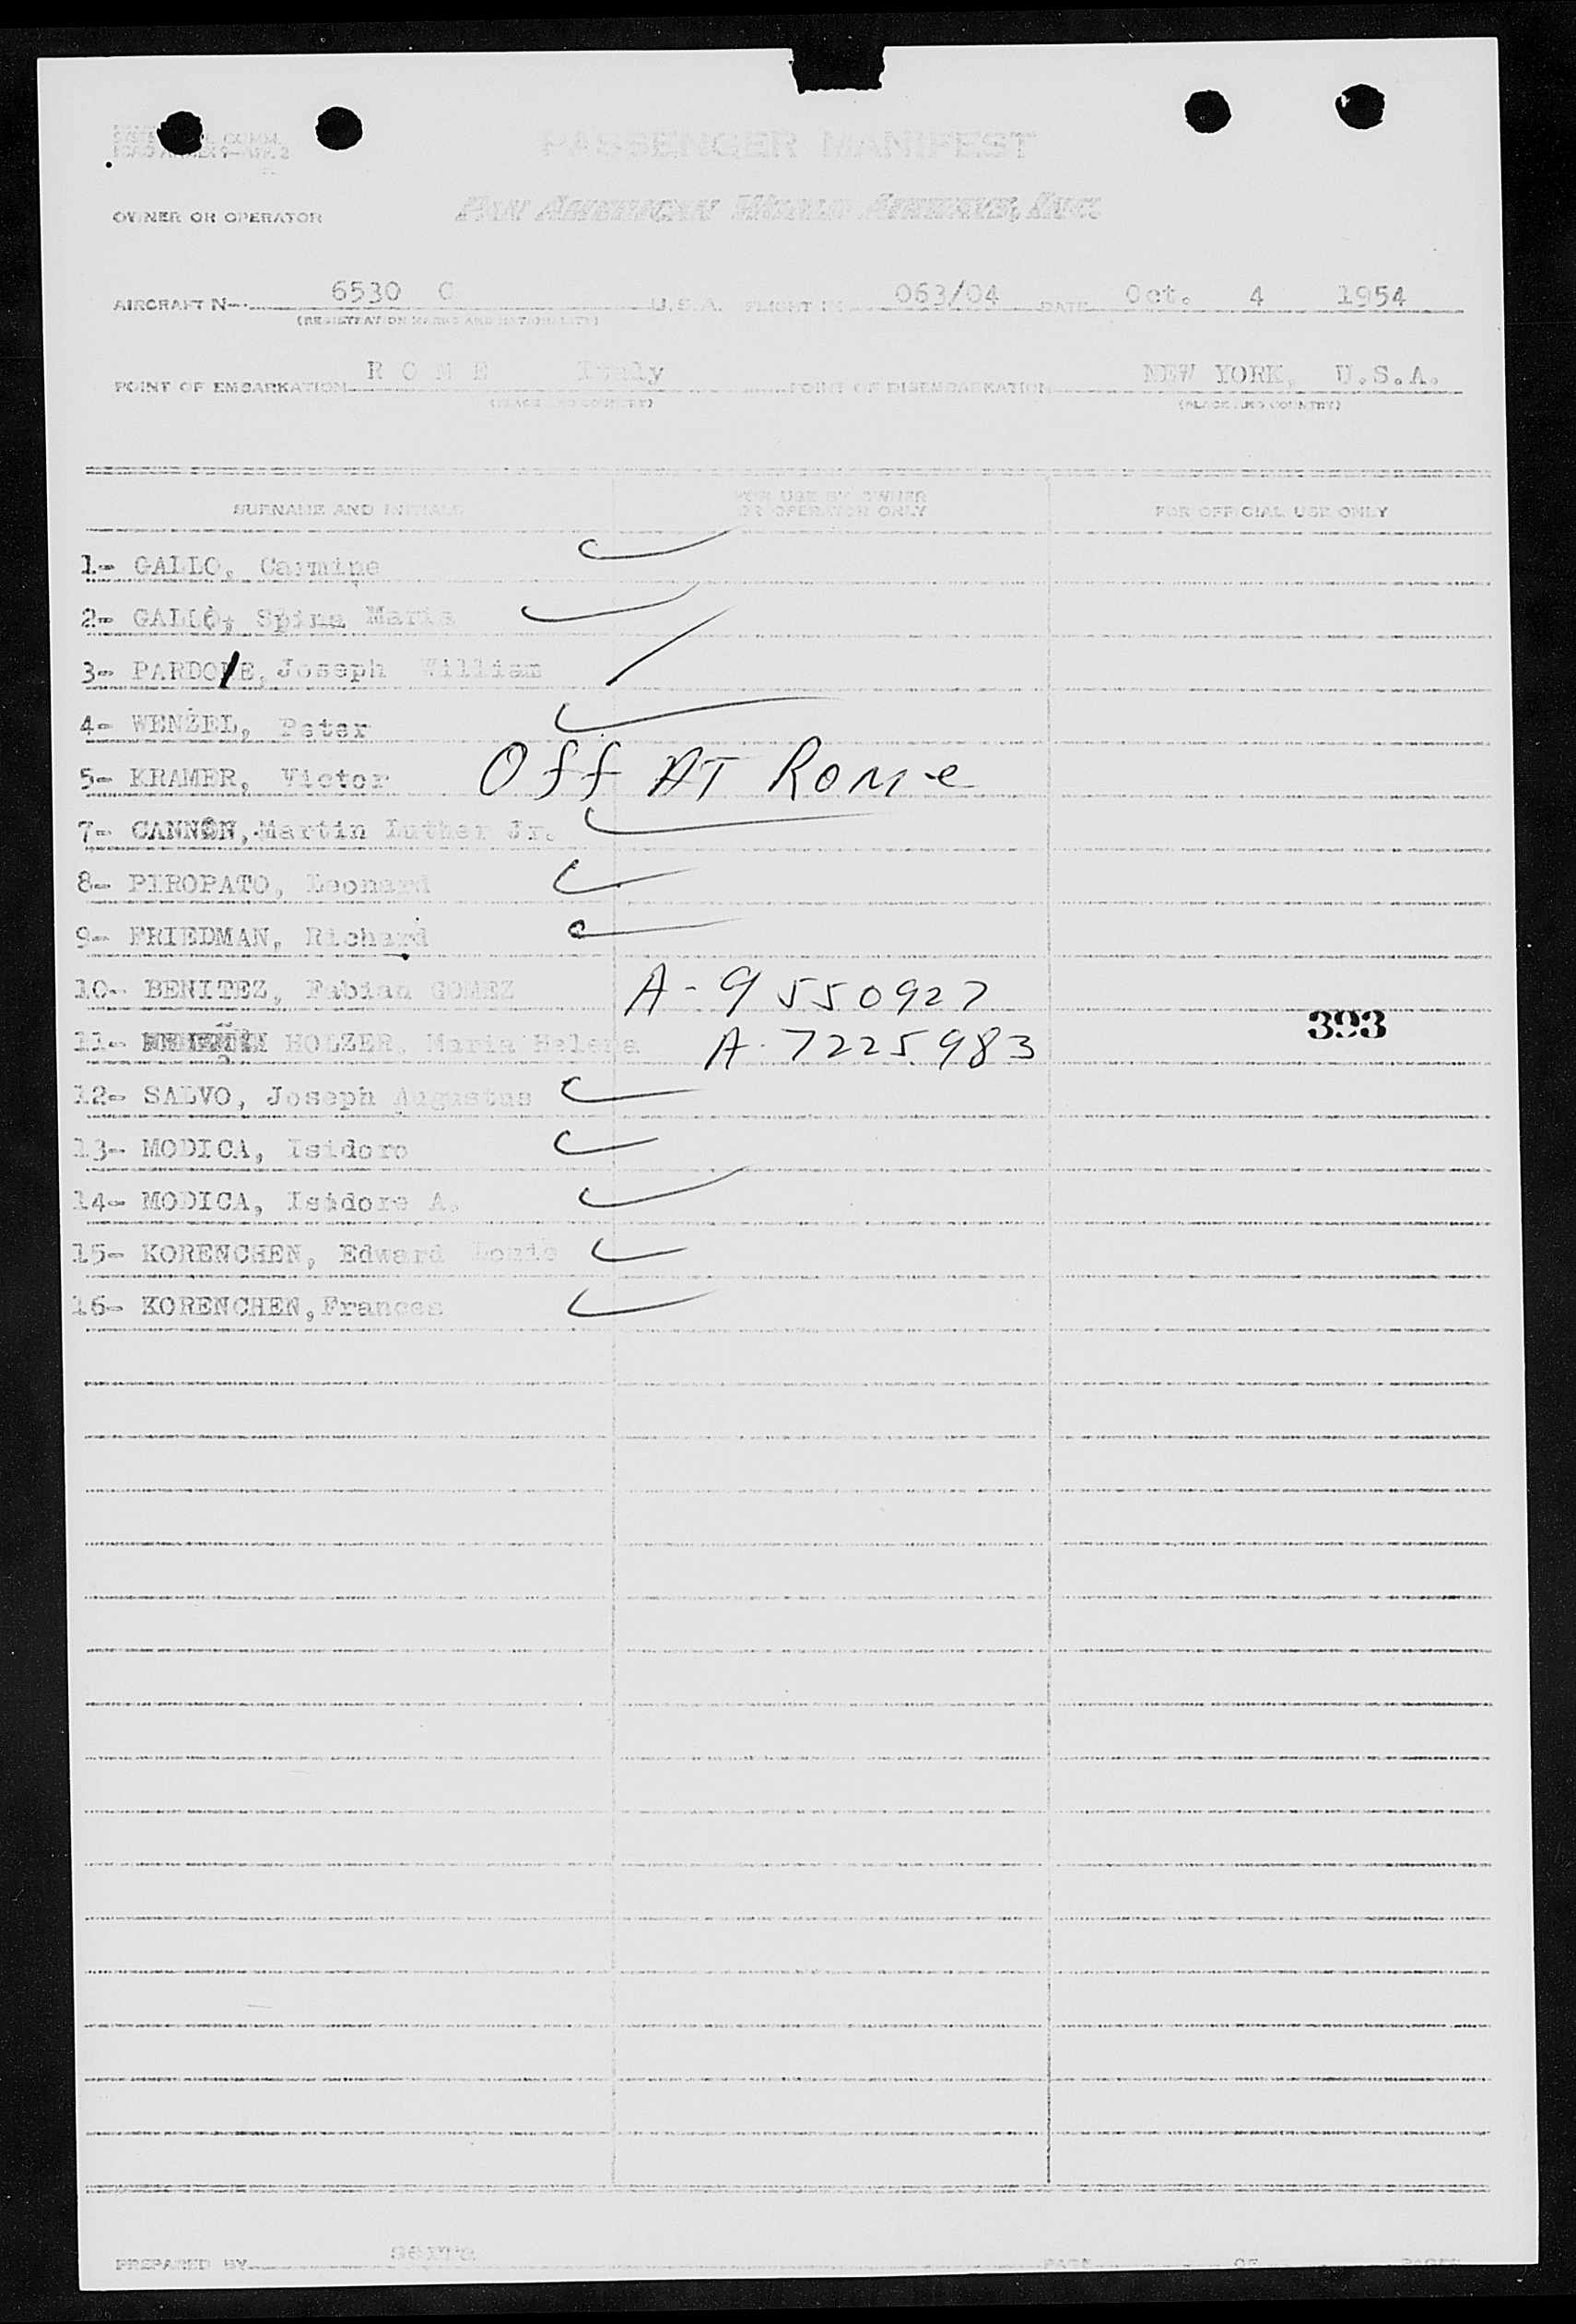 PASSENGER MANIFEST
OWNER OR OPERATOR PAN AMERICAN WORLD AIRWAYS, INC.
AIRCRAFT N 6530 C U.S.A. FLIGHT No. 063/04 DATE Oct. 4 1954
(REGISTRATION MARKS AND NATIONALITY)
POINT OF EMBARKATION R O M E Italy POINT OF DISEMBARKATION NEW YORK, U.S.A.
(PLACE AND COUNTRY) (PLACE AND COUNTRY)
SURNAME AND INITIALS FOR USE BY OWNER OR OPERATOR ONLY FOR OFFICIAL USE ONLY
1- GALLO, Carmine
2- GALLO, Spina Maria
3- PARDO/E, Joseph William
4- WENZEL, Peter
5- KRAMER, Victor Off AT Rome
7- CANNON, Martin Luther Jr.
8- PIROPATO, Leonard
9- FRIEDMAN, Richard
10- BENITEZ, Fabian GOMEZ A-9550927
11- HOLZER, Maria Helena A-7225983 393
12- SALVO, Joseph Augustus
13- MODICA, Isidoro
14- MODICA, Isidore A.
15- KORENCHEN, Edward Louis
16- KORENCHEN, Frances
PREPARED BY PAGE OF PAGES